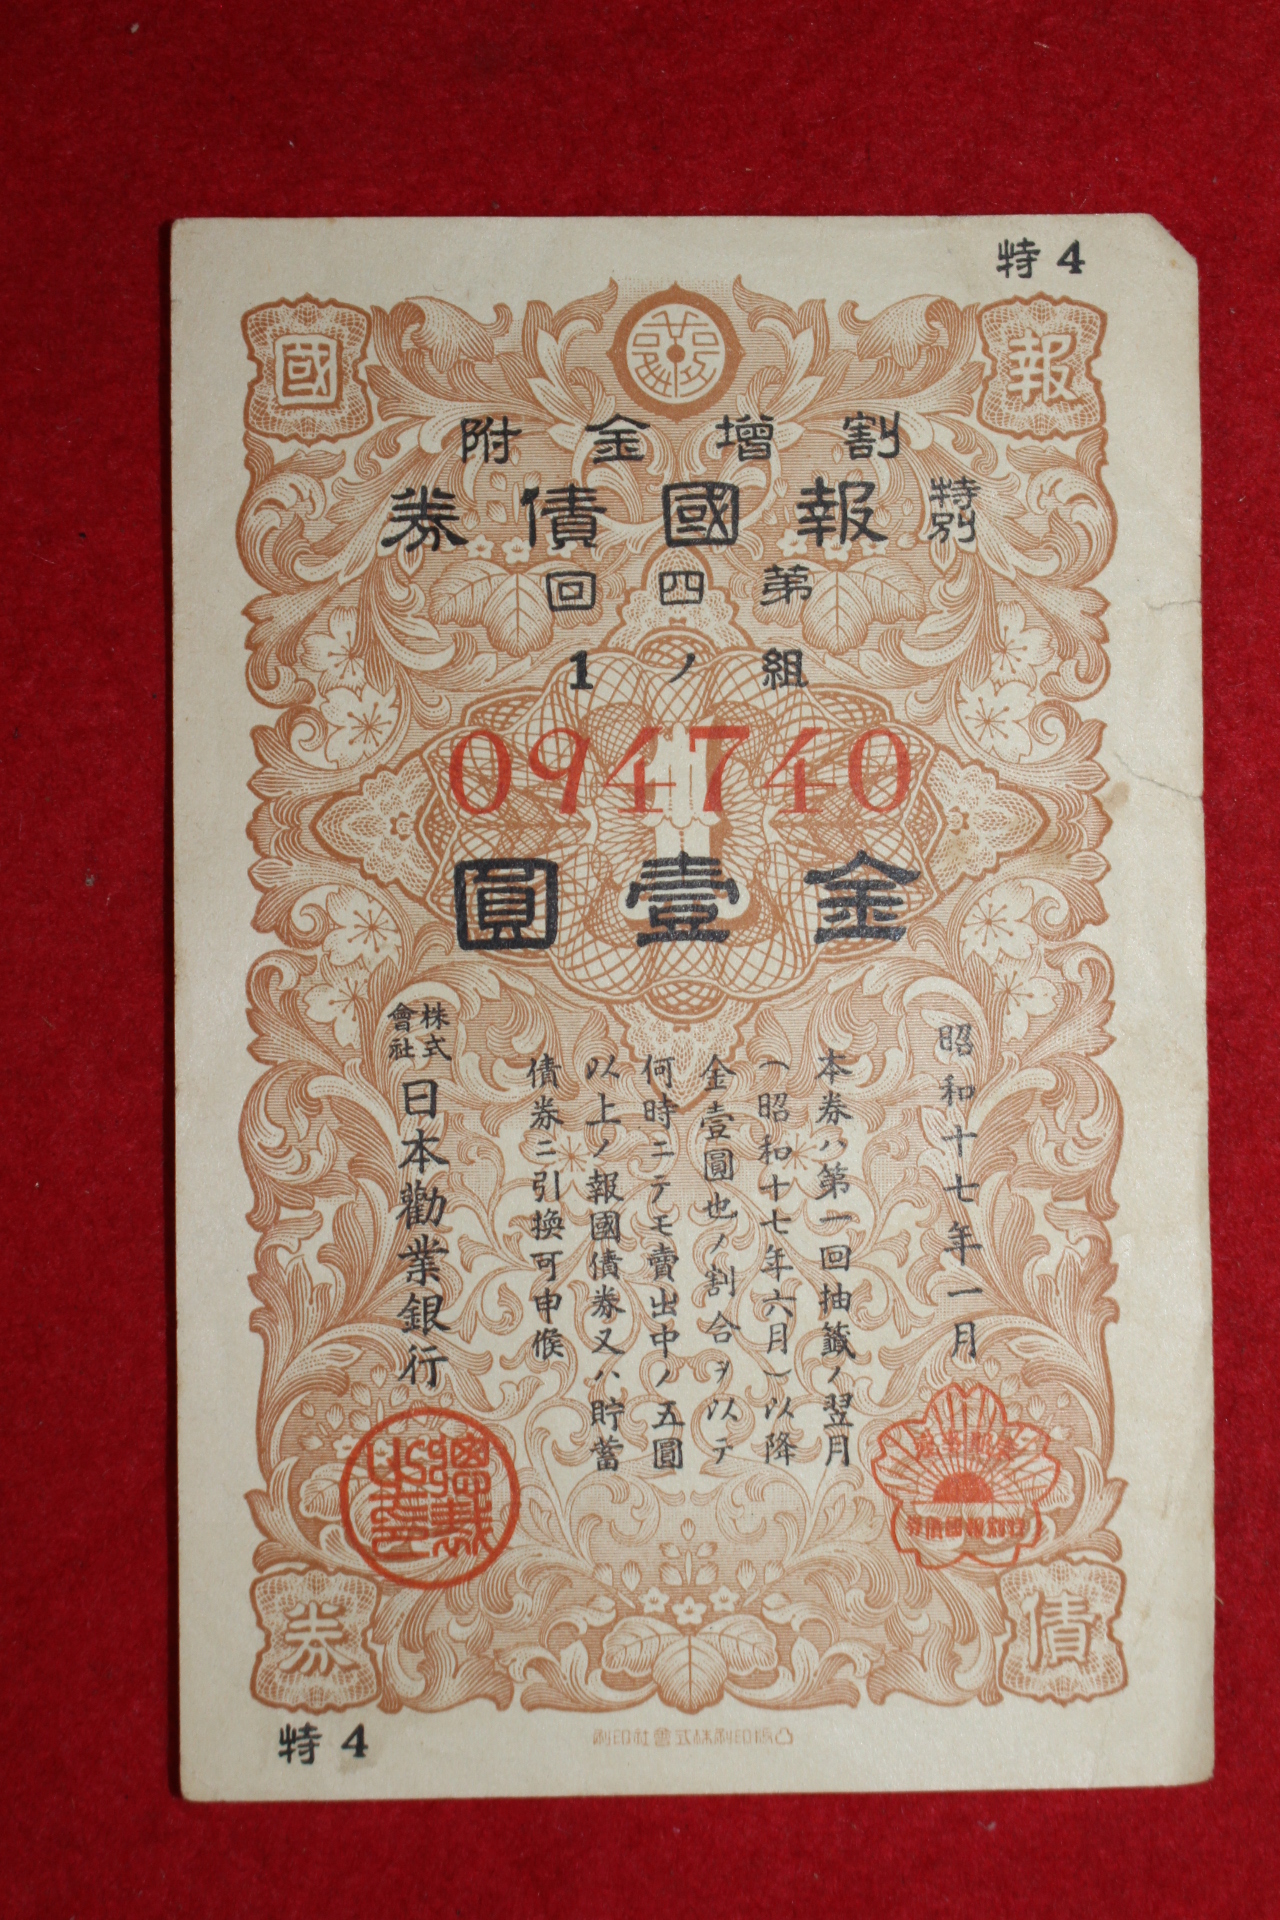 特4
報國
割增金附
特別報國債券
第四回
組ノ1
094740
金壹圓
昭和十七年一月
本券ハ第一回抽籤ノ翌月
(昭和十七年六月)以降
金壹圓也ノ割合ヲ以テ
何時ニテモ賣出中ノ五圓
以上ノ報國債券又ハ貯蓄
債券ニ引換可申候
株式會社日本勸業銀行
總裁之章
特別報國債券
債券
凸版印刷株式會社印刷
特4